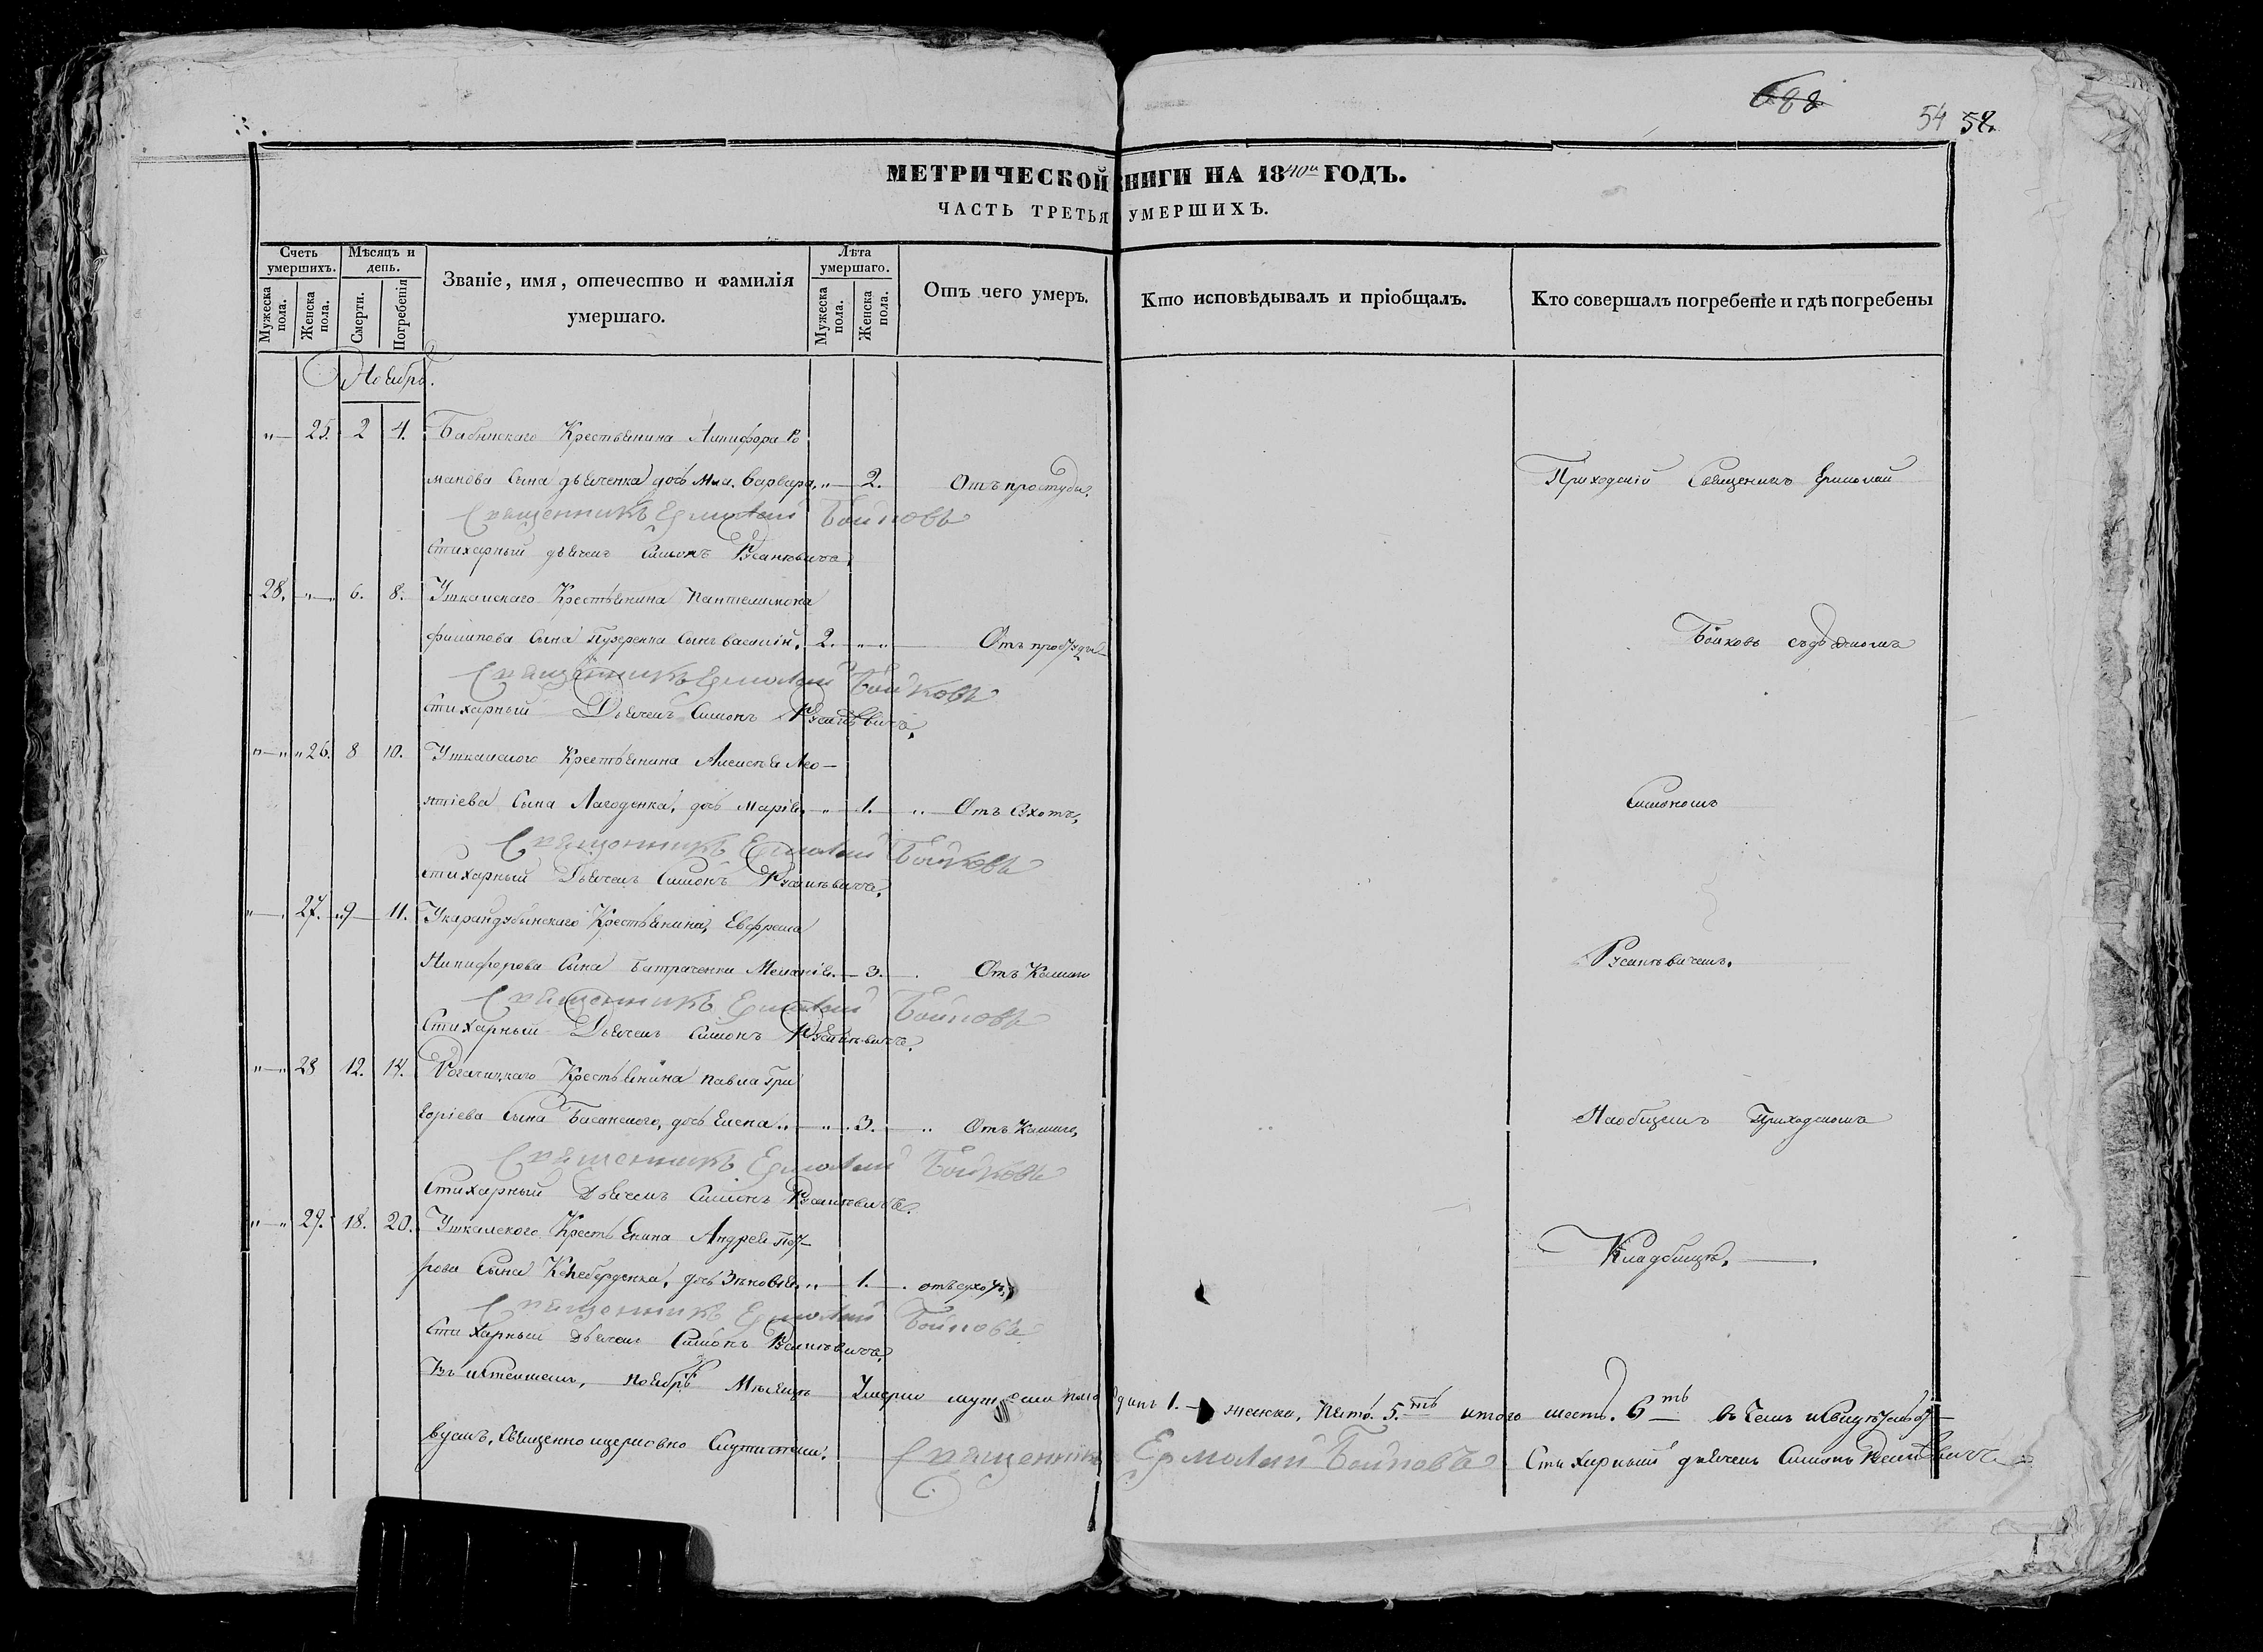 688
54 58.
МЕТРИЧЕСКОЙ КНИГИ НА 1840й ГОДЪ.
ЧАСТЬ ТРЕТЬЯ УМЕРШИХЪ.
Счетъ умершихъ.
Мужеска пола.
Женска пола.
Мѣсяцъ и день.
Смерти.
Погребенія
Званіе, имя, отечество и фамилія умершаго.
Лѣта умершаго.
Мужеска пола.
Женска пола.
Отъ чего умеръ.
Кто исповѣдывалъ и пріобщалъ.
Кто совершалъ погребеніе и гдѣ погребены
Ноябрь.
25. 2 4. Бабинскаго Крестьянина Никифора Ро
манова Сына дьяченка дочь Варвара. 2. Отъ простуды.
Приходскій Священникъ Ермолай
Священникъ Ермолай Бойковъ
Стихарный дьячекъ Симонъ
28. 6. 8. Ушкалскаго Крестьянина Пантелимона
филипова Сына Пузеренка Сынъ василій. 2. Отъ простуды
Бойковъ съ дьячкомъ
Священникъ Ермолай Бойковъ
Стихарный Дьячекъ Симонъ
26. 8 10. Ушкалского Крестьянина Алексея Лео-
нтіева Сына Лагоденка, дочь Марія. 1. Отъ Сухотъ,
Симономъ
Священникъ Ермолай Бойковъ
Стихарный Дьячекъ Симонъ
27. 9 11. Укарайдубинскаго Крестьянина, Евфрема
Никифорова Сына Батраченка Меланія. 3. Отъ Кашлю
Священникъ Ермолай Бойковъ
Стихарный Дьячекъ Симонъ
28 12. 14. Рогачицкаго Крестьянина павла Гри
горіева Сына Басанского, дочь Елена. 3. Отъ Кашлю,
Наобщемъ Приходскомъ
Священникъ Ермолай Бойковъ
Стихарный Дьячекъ Симонъ
29. 18. 20. Ушкалского Крестьянина Андрея Пет-
рова Сына Кенеберденка, дочь Зѣновія. 1. отъ сухотъ,
Кладбищѣ.
Священникъ Ермолай Бойковъ
Стихарный Дьячекъ Симонъ
Въ ноябрѣ Мѣсяцѣ Умерло мужеска пола одинъ 1. женска, пять. 5.ть итого шесть. 6ть въ чемъ и свидѣтельст-
вуемъ, Священно церковно Служители: Священникъ Ермолай Бойковъ Стихарный дьячекъ Симонъ